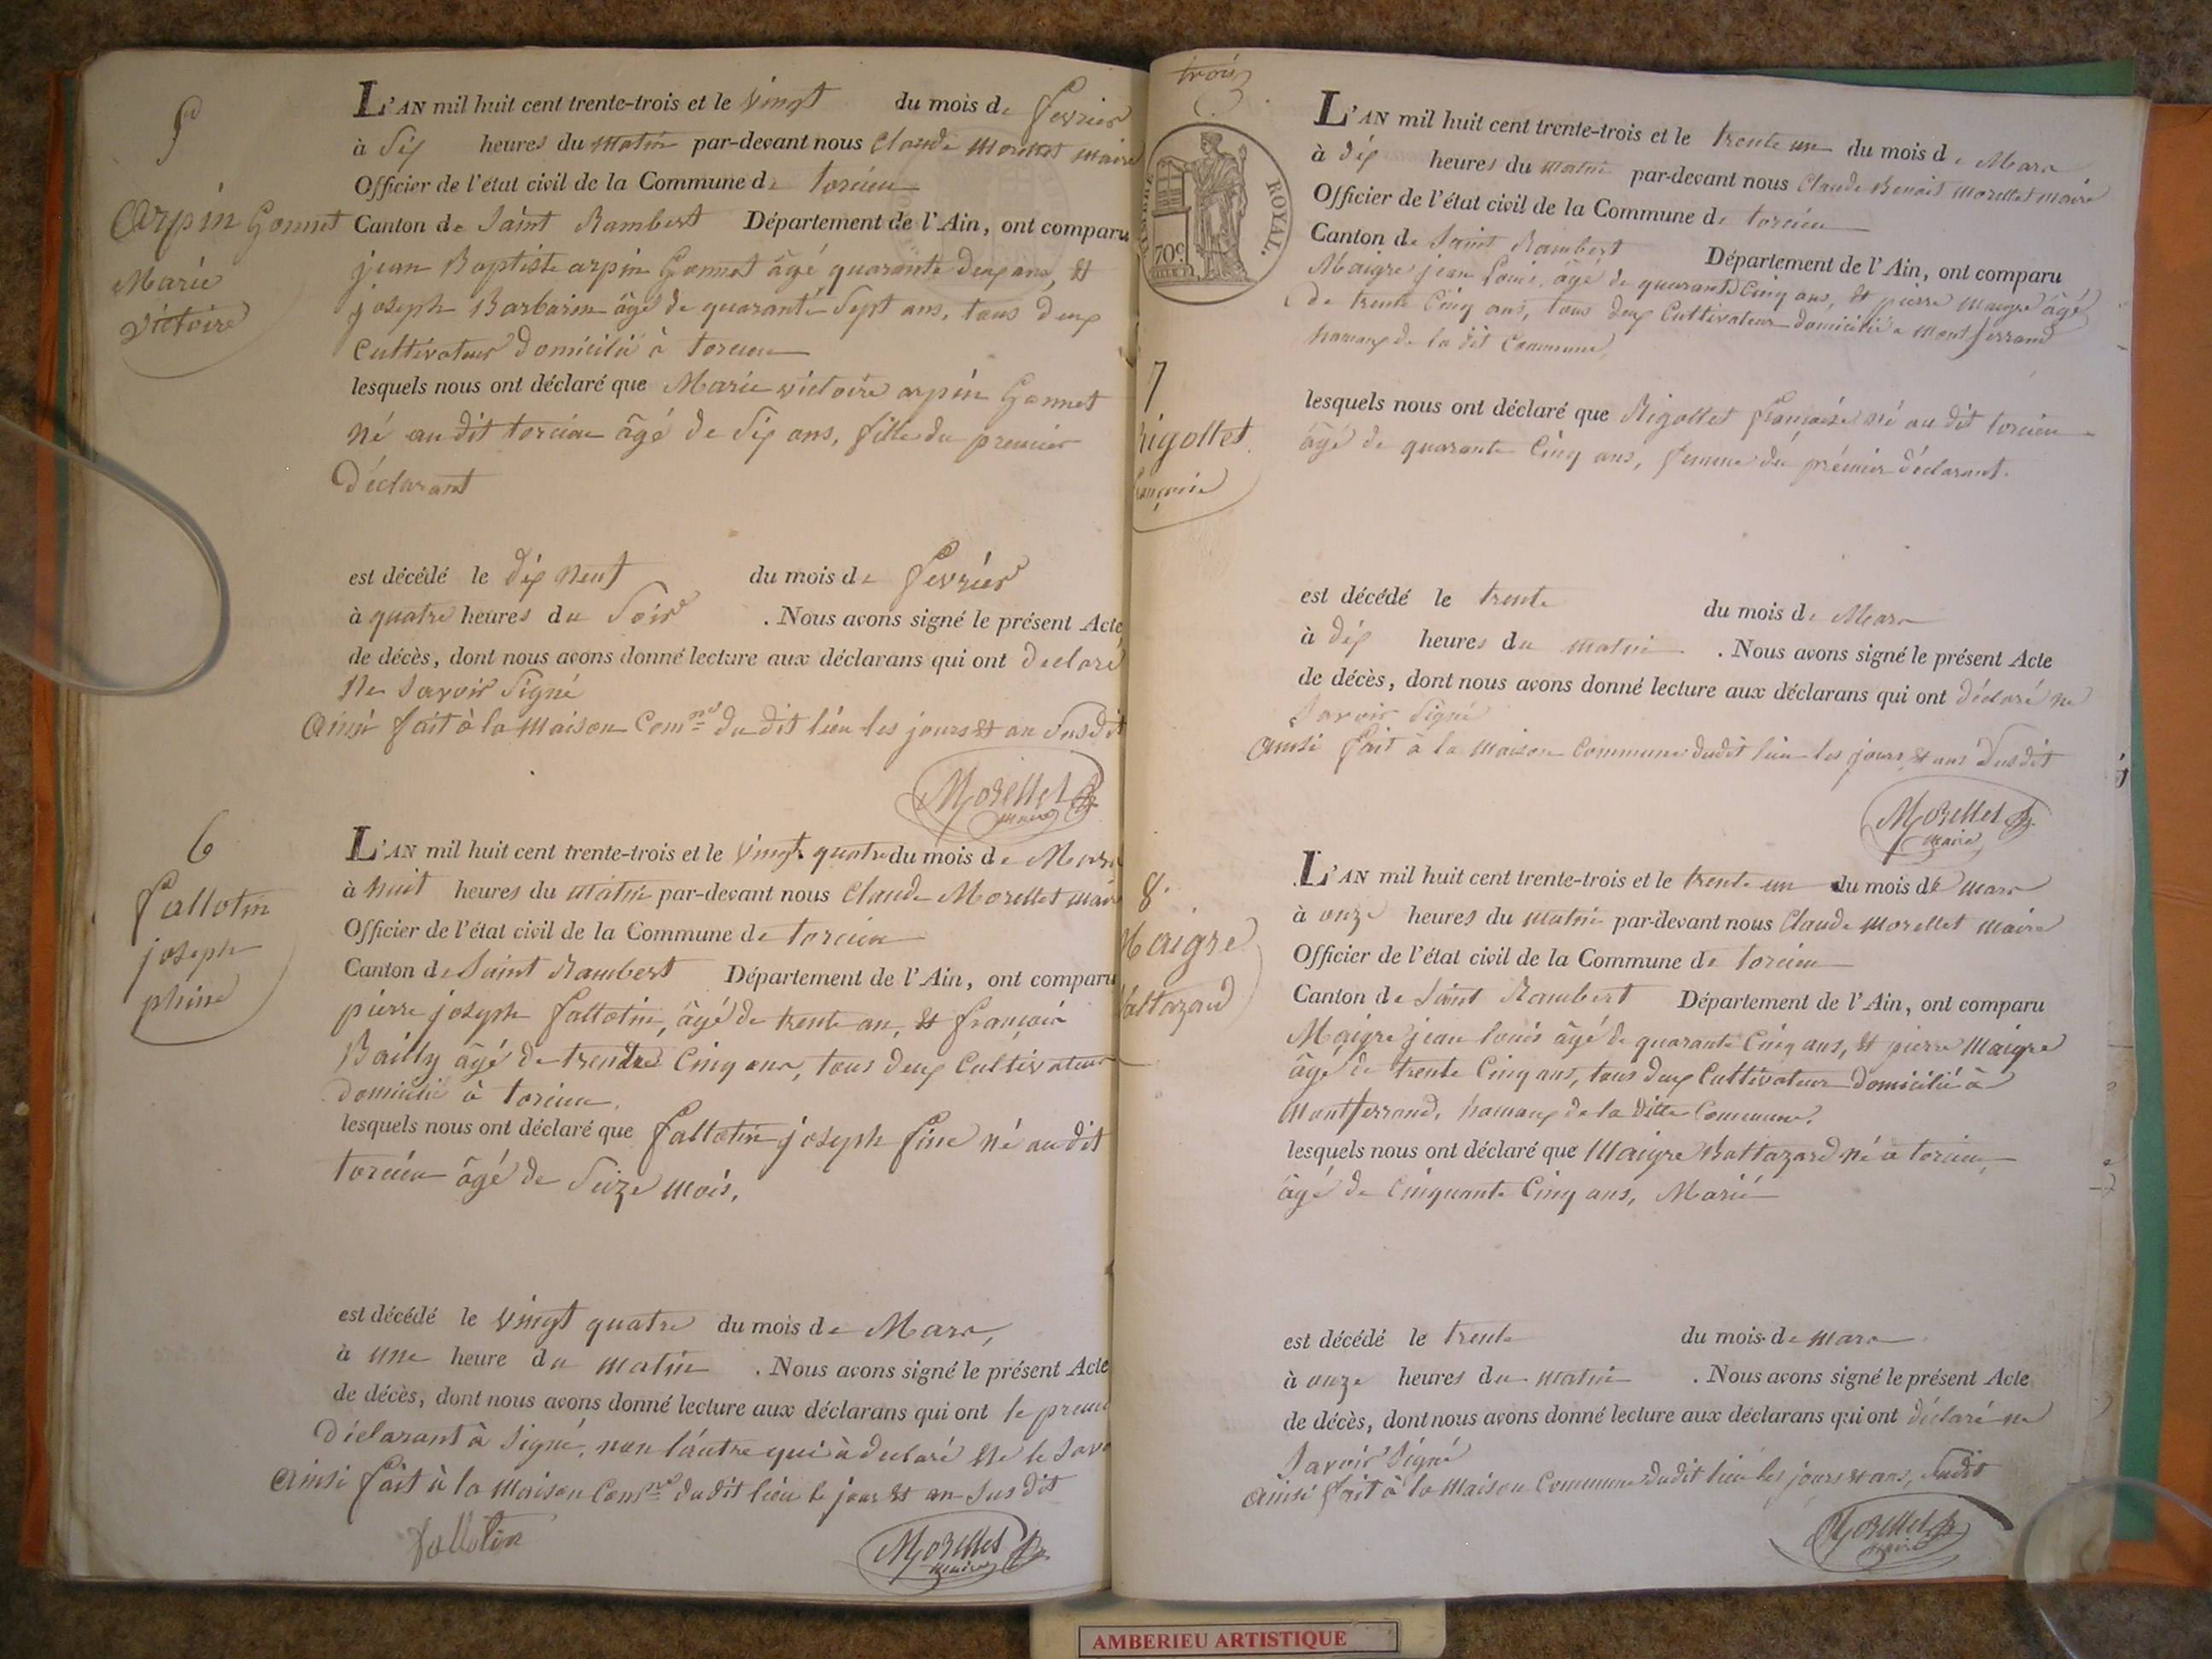 5
Arpin Gonnet
Marie
victoire
L'AN mil huit cent trente-trois et le vingt du mois de fevrier
à dix heures du matin par-devant nous Claude Morellet maire
Officier de l'état civil de la Commune de torcieu
Canton de Saint Rambert Département de l'Ain, ont comparu
jean Baptiste arpin Gonnet âgé quarante deux ans, et
joseph Barbarin âgé de quarante Sept ans, tous deux
Cultivateur domicilié à torcieu
lesquels nous ont déclaré que Marie victoire arpin Gonnet
né audit torcieu âgé de dix ans, fille du premier
déclarant
est décédé le dix neuf du mois de fevrier
à quatre heures du Soir . Nous avons signé le présent Acte
de décès, dont nous avons donné lecture aux déclarans qui ont declaré
Ne Savoir Signé
Ainsi fait à la Maison Comne du dit lieu les jours et an Susdit
Morellet
maire
6
fallotin
joseph
phine
L'AN mil huit cent trente-trois et le vingt quatre du mois de Mars
à huit heures du matin par-devant nous Claude Morellet maire
Officier de l'état civil de la Commune de torcieu
Canton de Saint Rambert Département de l'Ain, ont comparu
pierre joseph fallotin, âgé de trente an, et françois
Bailly âgé de trente Cinq ans, tous deux Cultivateur
domicilié à torcieu.
lesquels nous ont déclaré que fallotin joseph fine né audit
torcieu âgé de Seize mois,
est décédé le vingt quatre du mois de Mars,
à une heure du matin . Nous avons signé le présent Acte
de décès, dont nous avons donné lecture aux déclarans qui ont le premier
Déclarant à Signé, non l'autre qui à declaré Ne le Savo
Ainsi fait à la Maison Comne dudit lieu le jour et an Susdit
fallotin
Morellet
maire
trois
TIMBRE ROYAL.
70c
7
Rigollet
françoise
L'AN mil huit cent trente-trois et le trente un du mois de Mars
à dix heures du matin par-devant nous Claude Benoit Morellet maire
Officier de l'état civil de la Commune de torcieu
Canton de Saint Rambert Département de l'Ain, ont comparu
Maigre jean Louis, âgé de quarante Cinq ans, et pierre maigre âgé
de trente Cinq ans, tous deux Cultivateur domicilié a montferrand
hamaux de la dit Commune,
lesquels nous ont déclaré que Rigollet françoise né au dit torcieu
âgé de quarante Cinq ans, femme du prémier déclarant.
est décédé le trente du mois de Mars
à dix heures du matin . Nous avons signé le présent Acte
de décès, dont nous avons donné lecture aux déclarans qui ont déclaré ne
Savoir Signé
Ainsi fait à la Maison Commune dudit lieu les jours et ans Susdit
Morellet
maire
8.
Maigre
Baltazard
L'AN mil huit cent trente-trois et le trente un du mois de mars
à onze heures du matin par-devant nous Claude Morellet maire
Officier de l'état civil de la Commune de torcieu
Canton de Saint Rambert Département de l'Ain, ont comparu
Maigre jean louis âgé de quarante Cinq ans, et pierre Maigre
âgé de trente Cinq ans, tous deux Cultivateur domicilié à
Montferrand, hamaux de la ditte Commune.
lesquels nous ont déclaré que Maigre Baltazard né a torcieu,
âgé de Cinquante Cinq ans, Marié
est décédé le trente du mois de mars
à onze heures du matin . Nous avons signé le présent Acte
de décès, dont nous avons donné lecture aux déclarans qui ont déclaré ne
Savoir Signé
Ainsi fait à la Maison Commune dudit lieu les jours et ans, Sudit
Morellet
maire
AMBERIEU ARTISTIQUE